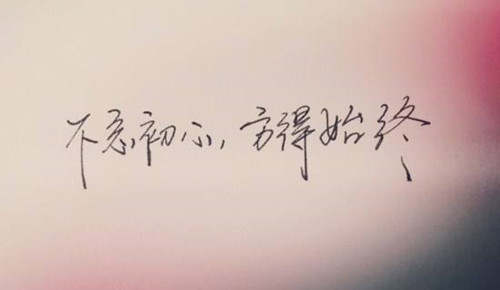 不忘初心,方得始终